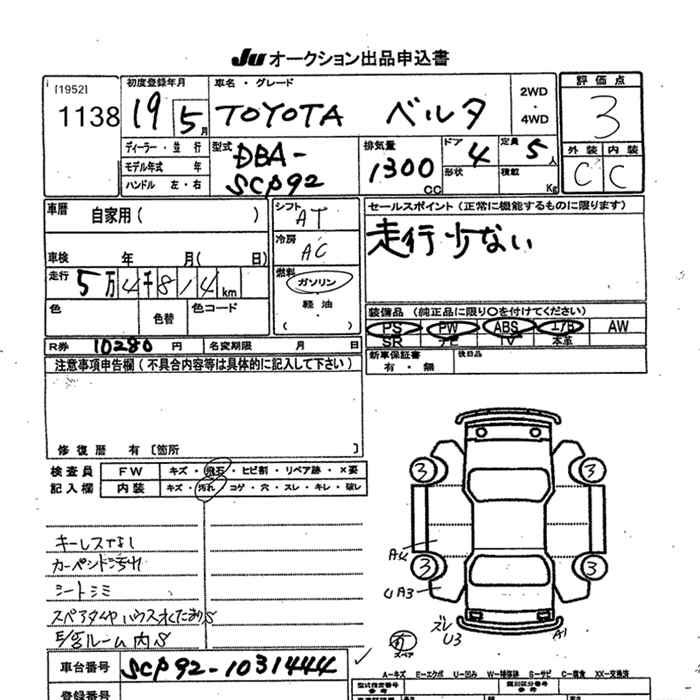 Ju オークション出品申込書
[1952]
1138
初度登録年月
19 5月
車名・グレード
TOYOTA ベルタ
2WD
・
4WD
評価点
3
外装 内装
C C
ディーラー・並行
モデル年式 年
ハンドル 左・右
型式
DBA-
SCP92
排気量
1300 CC
ドア 4
形状
定員 5人
積載 Kg
車歴 自家用( )
車検 年 月( 日)
走行 5万4千814km
色 色替 色コード
シフト
AT
冷房
AC
燃料
ガソリン
軽油
( )
セールスポイント(正常に機能するものに限ります)
走行少ない
装備品(純正品に限り○を付けてください)
PS PW ABS エアB AW
SR ナビ TV 本革
新車保証書
有・無
後日品
R券 10280 円 名変期限 月 日
注意事項申告欄(不具合内容等は具体的に記入して下さい)
修復歴 有〔箇所 〕
検査員 FW キズ・飛石・ヒビ割・リペア跡・×要
記入欄 内装 キズ・汚れ・コゲ・穴・スレ・キレ・破レ
キーレスなし
シートシミ
3 3
3 3
A4
UA3
ズレ
U3
A1
スペア
車台番号 SCP92-1031444
登録番号
A-キズ E-エクボ U-凹み W-補修跡 S-サビ C-腐食 XX-交換済
型式指定番号
参考
類別区分番号
参考